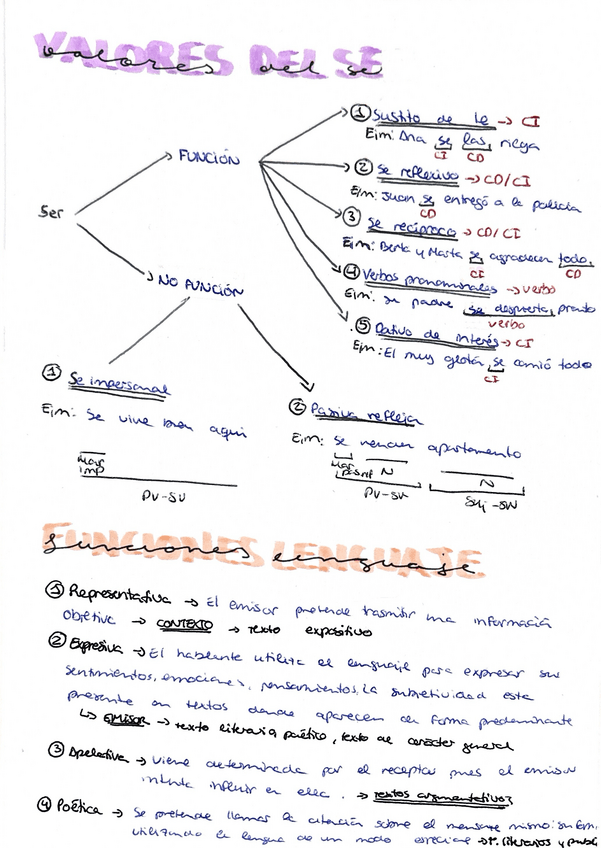 VALORES DEL SE
valores del se
① Sustito de le → CI
Ejm: Ana se las niega
CI CD
FUNCIÓN
② Se reflexivo → CD/CI
Ejm: Juan se entregó a la policía
CD
Ser
③ Se recíproco → CD/CI
Ejm: Berta y Marta se agradecen todo
CI CD
④ Verbos pronominales → verbo
NO FUNCIÓN
Ejm: Su padre se despierta pronto
verbo
⑤ Dativo de interés → CI
Ejm: El muy glotón se comió todo
CI
① Se impersonal
Ejm: Se vive bien aquí
Mar imp
PV-SV
② Pasiva refleja
Ejm: Se venden apartamento
Mar pas ref N N
PV-SV Suj-SN
FUNCIONES LENGUAJE
funciones lenguaje
① Representativa → El emisor pretende trasmitir una información
objetiva → CONTEXTO → texto expositivo
② Expresiva → El hablante utiliza el lenguaje para expresar sus
sentimientos, emociones, pensamientos. La subjetividad esta
presente en textos donde aparecen de forma predominante
↳ EMISOR → texto literario poético, texto de carácter general
③ Apelativa → Viene determinada por el receptor pues el emisor
intenta influir en ella. → textos argumentativos
④ Poética → Se pretende llamar la atención sobre el mensaje mismo: su form.
utilizando la lengua de un modo especial → t. literarios y